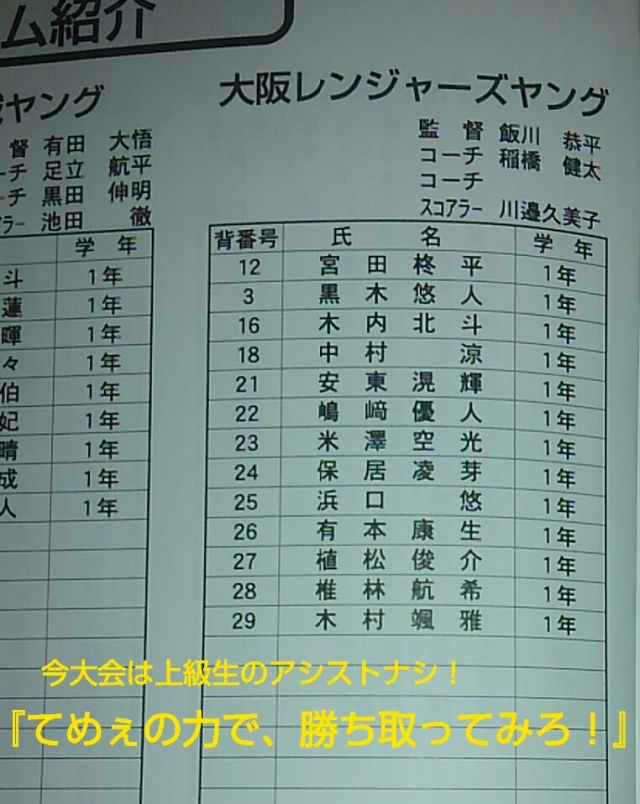 ム紹介
ヤング
督 有田 大悟
ーチ 足立 航平
ーチ 黒田 伸明
ラー 池田 徹
学 年
斗 1年
蓮 1年
暉 1年
々 1年
伯 1年
妃 1年
晴 1年
成 1年
人 1年
大阪レンジャーズヤング
監 督 飯川 恭平
コーチ 稲橋 健太
コーチ
スコアラー 川邉久美子
背番号 氏 名 学 年
12 宮田柊平 1年
3 黒木悠人 1年
16 木内北斗 1年
18 中村 涼 1年
21 安東滉輝 1年
22 嶋﨑優人 1年
23 米澤空光 1年
24 保居凌芽 1年
25 浜口 悠 1年
26 有本康生 1年
27 植松俊介 1年
28 椎林航希 1年
29 木村颯雅 1年
今大会は上級生のアシストナシ！
『てめぇの力で、勝ち取ってみろ！』